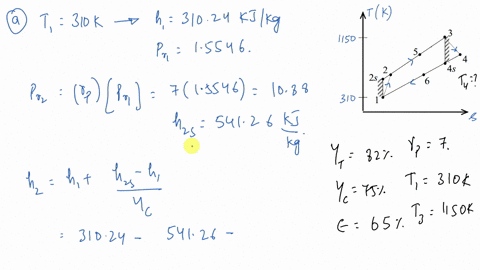 (a) T₁ = 310K → h₁ = 310.24 KJ/kg
Pr₁ = 1.5546.
Pr₂ = (rp) [Pr₁] = 7(1.5546) = 10.88
h₂s = 541.26 KJ/kg
h₂ = h₁ + (h₂s − h₁)/ηc
= 310.24 − 541.26 −
T(K)
1150
310
1
2s
2
5
3
4s
4
6
s
T₄ = ?
ηT = 82% rp = 7.
ηc = 75% T₁ = 310K
ε = 65% T₃ = 1150K